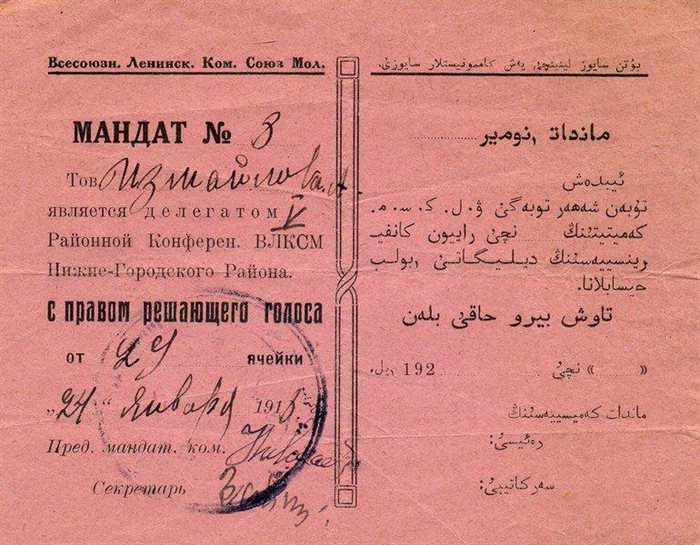 Всесоюзн. Ленинск. Ком. Союз Мол.
МАНДАТ № 3
Тов. Измайлова А
является делегатом V
Районной Конферен. ВЛКСМ
Нижне-Городского Района.
с правом решающего голоса
от 29 ячейки
„24“ января 191
Пред. мандат. ком.
Секретарь
بۇتن سايوز لينينچى ياش كاممونيستلار سايوزى.
مانداتنومير
ئيبدەش
تۇبەن شەھەر توبەگى ۋ. ل. ك. س. م.
كەميتيتىنڭ نچى رايون كانفى
رينسييەسىنڭ ديليگاتى بولب
حيسابلانا.
تاوش بيرو حاقى بلەن
« » نچى 192 يل.
ماندات كەميسييەسىنڭ
رەئيسى:
سەركاتيبى: